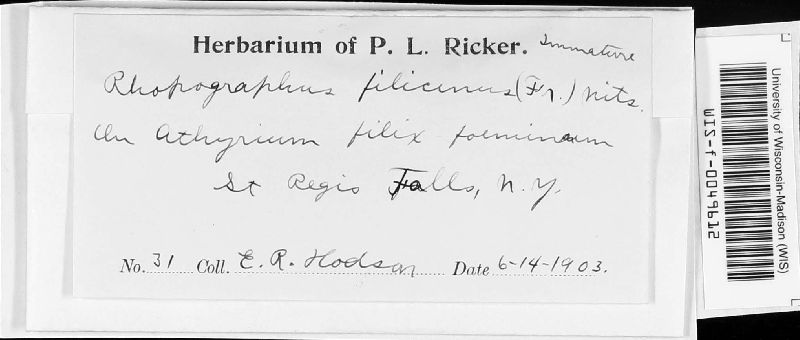 Herbarium of P. L. Ricker. Immature
Rhopographus filicinus (Fr.) Nits.
On Athyrium filix foeminum
St Regis Falls, N. Y.
No. 31 Coll. E. R. Hodson Date 6-14-1903.
University of Wisconsin-Madison (WIS)
WIS-f-0049612